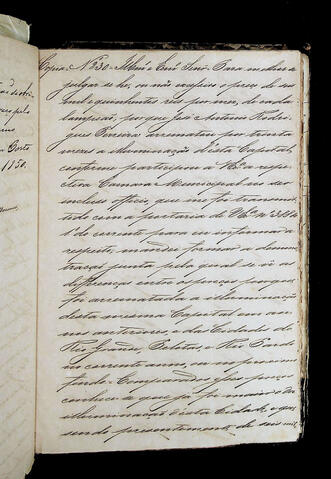 Copia. Nº 30. Illmo e Exmo Senr. Para melhor
julgar se he, ou não exce o preço de seis
mil e quinhentos réis por mez, de cada
lampião, por que foi Antonio Rodri
gues Pereira arrematou por trinta
mezes a illuminação d'esta Capital,
conforme participou a V. Exa. a respe
ctiva Camara Municipal no seu
incluso officio, que me foi transmit
tido com a portaria de V. Exa. nº
1º do corrente para eu informar a
respeito, mandei formar a demons
tração junta pela qual se vê as
differenças entre os preços porque
foi arrematada a illuminação
desta mesma Capital em an
nos anteriores, e das Cidades do
Rio Grande, Pelotas, e Rio Pardo
no corrente anno, e no proximo
findo. Comparados esses preços
conhece-se que já foi maior o da
illuminação d'esta Cidade, e que
sendo presentemente de seis mil
Porto
1850.